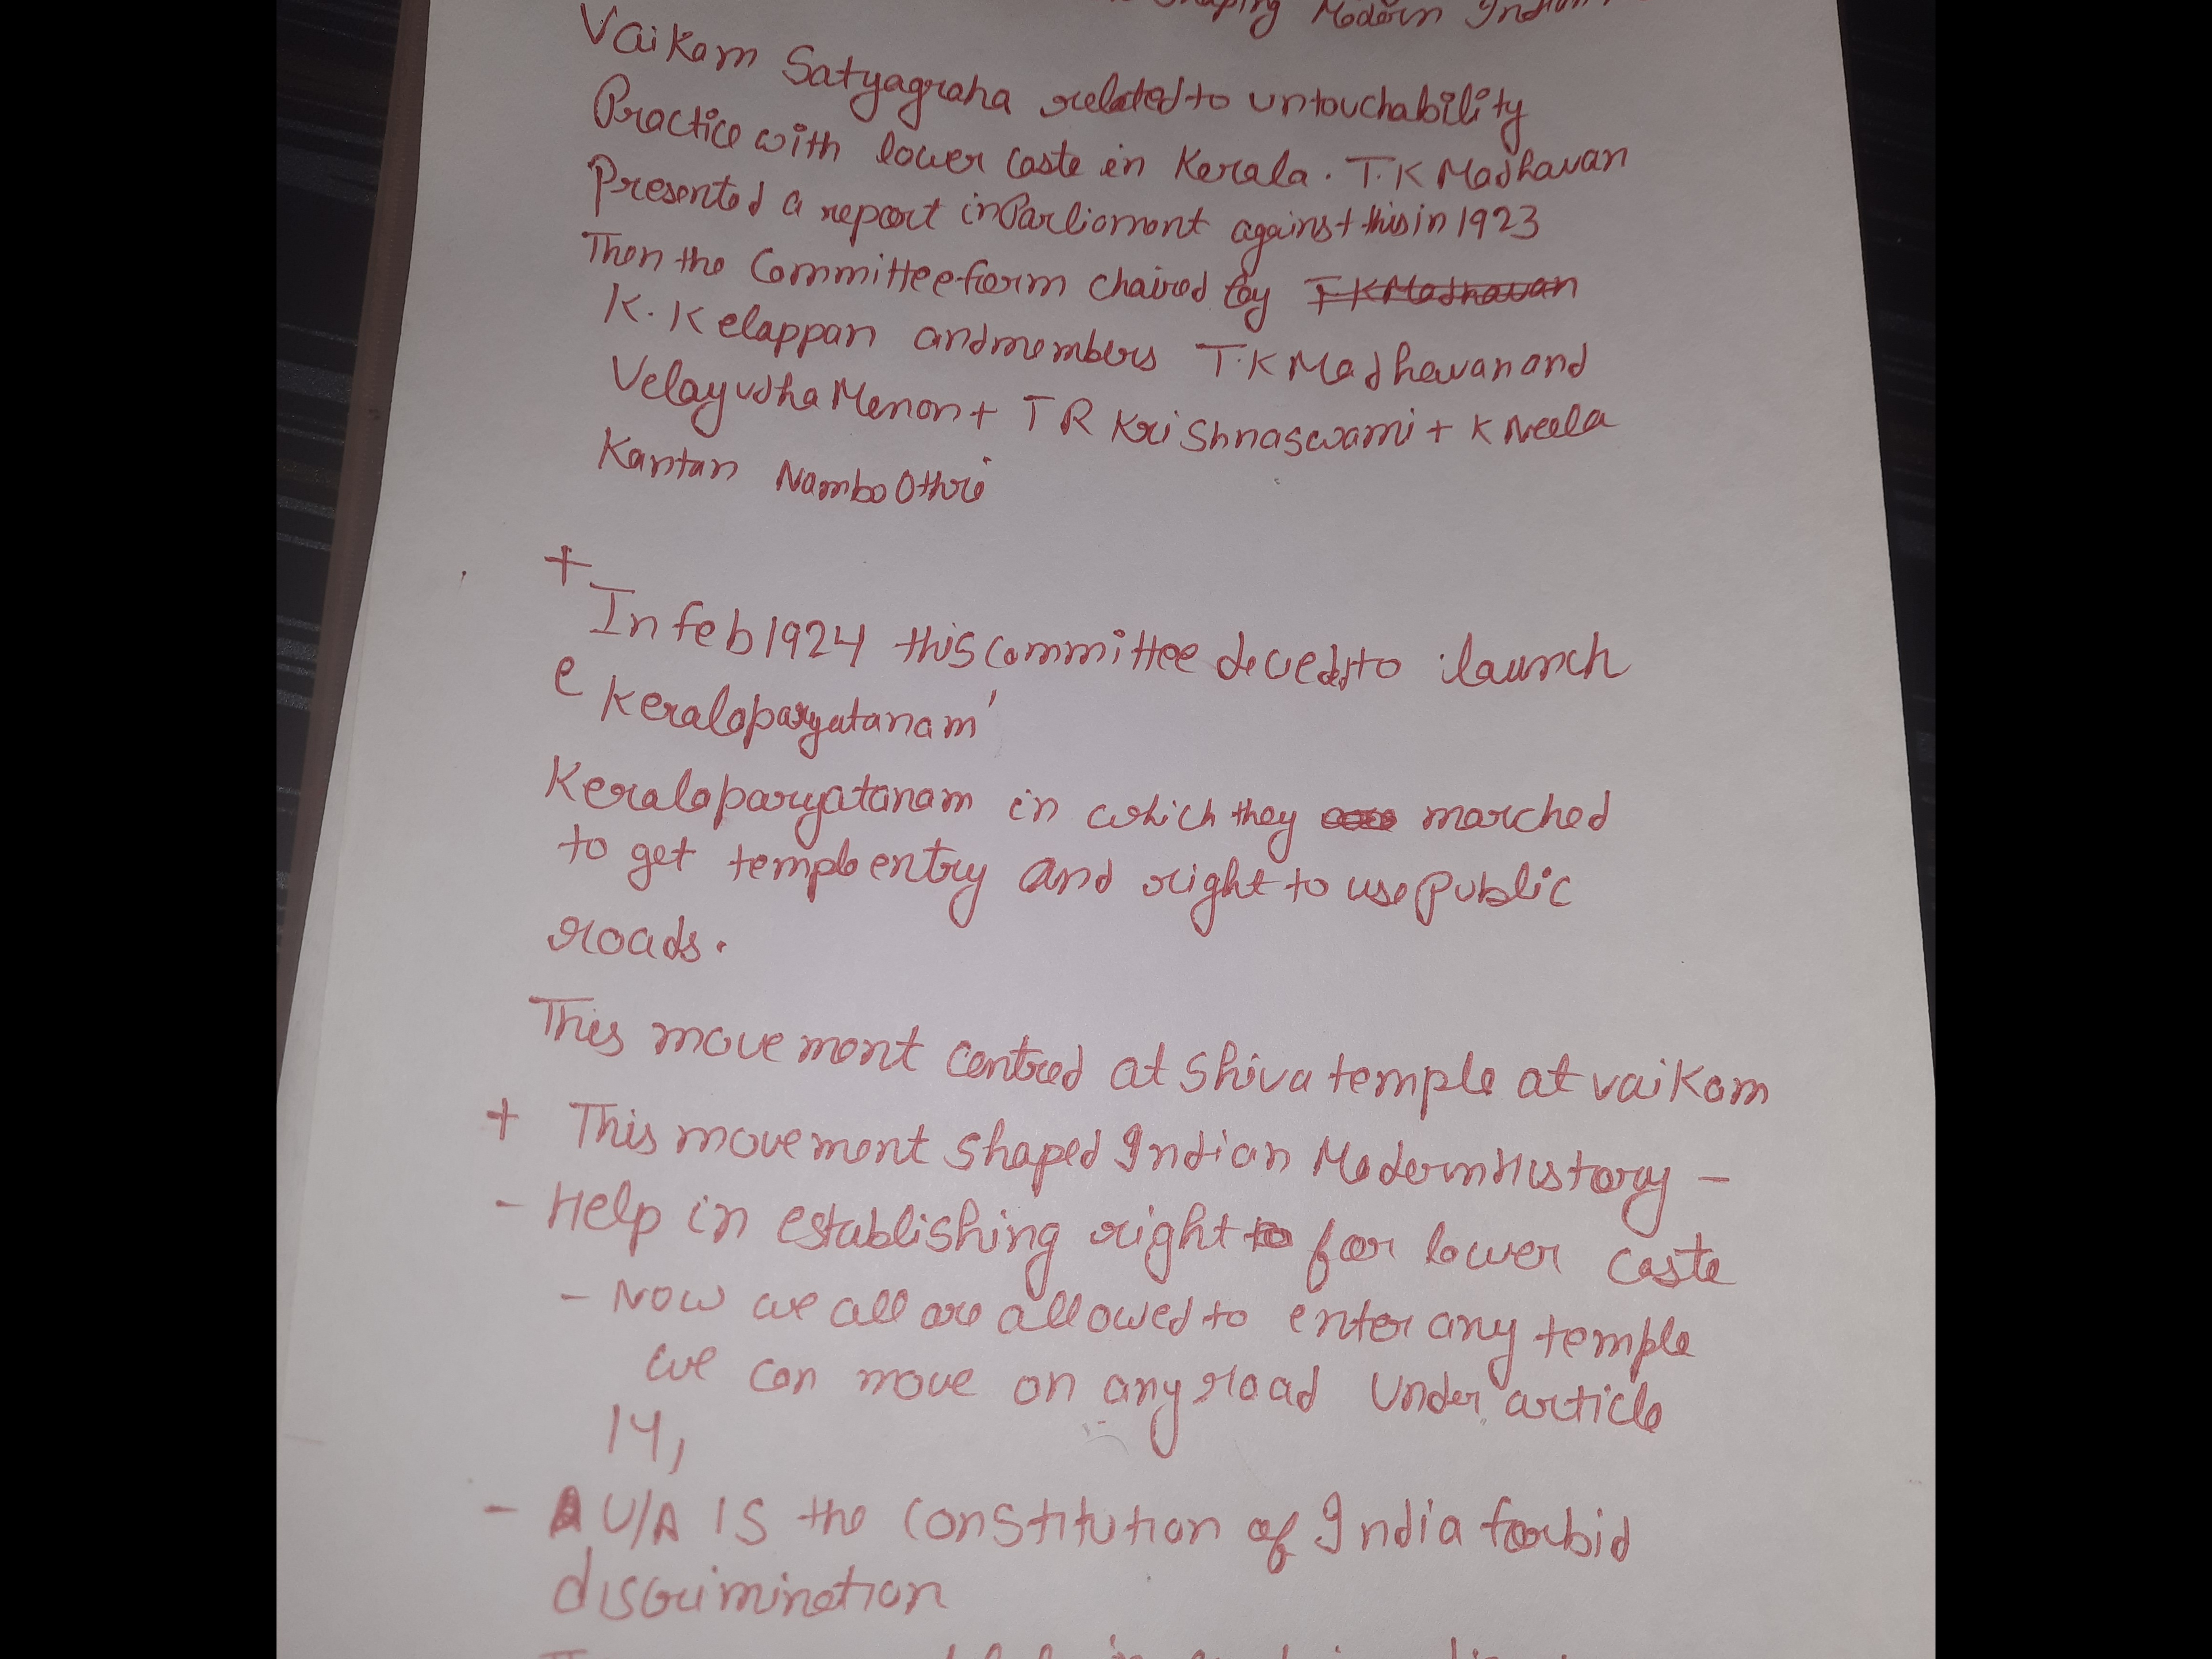 shaping Modern Indian
Vaikom Satyagraha related to untouchability
Practice with lower caste in Kerala. T.K Madhavan
Presented a report in Parliament against this in 1923
Then the Committee form chaired by T.K Madhavan
K. Kelappan and members T.K Madhavan and
Velayudha Menon + T R Krishnaswami + K Neela
Kantan Namboothri
+
In feb 1924 this committee decieds to launch
' Keralaparyatanam'
Keralaparyatanam in which they marched
to get temple entry and right to use public
roads.
This movement centred at Shiva temple at vaikom
+ This movement shaped Indian Modern History -
- Help in establishing right to for lower caste
- Now we all are allowed to enter any temple
we can move on any road under article
14,
- U/A 15 the Constitution of India forbid
discrimination